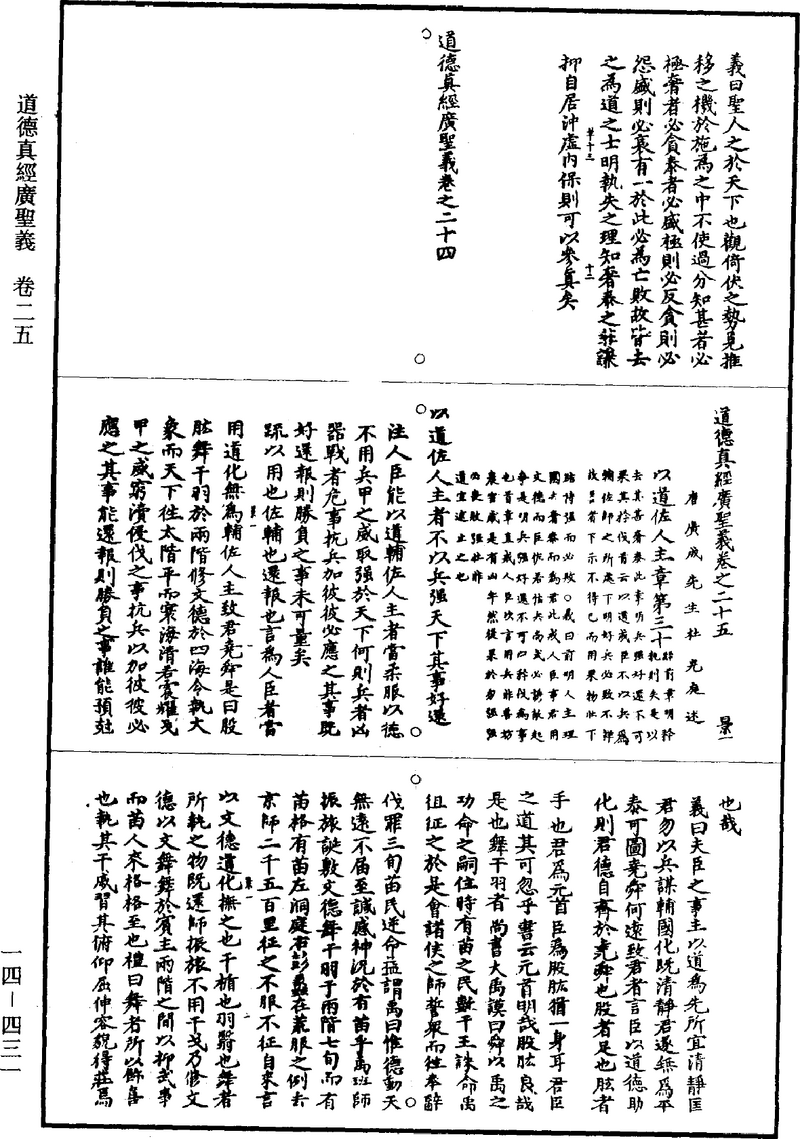 道德真經廣聖義 卷二五
一四－四三一
義曰聖人之於天下也觀倚伏之勢見推
移之機於施為之中不使過分知甚者必
極奢者必貪泰者必盛極則必反貪則必
怨盛則必衰有一於此必為亡敗故皆去
之為道之士明執失之理知奢泰之非謙
抑自居沖虛內保則可以參真矣
道德真經廣聖義卷之二十四
道德真經廣聖義卷之二十五 景一
唐廣成先生杜光庭述
以道佐人主章第三十
以道佐人主者不以兵强天下其事好還
注人臣能以道輔佐人主者當柔服以德
不用兵甲之威取强於天下何則兵者凶
器戰者危事抗兵加彼彼必應之其事既
好還報則勝負之事未可量矣
疏以用也佐輔也還報也言為人臣者當
用道化無為輔佐人主致君堯舜是曰股
肱舞干羽於兩階修文德於四海令執大
象而天下往太階平而寰海清若震耀戈
甲之威窮瀆侵伐之事抗兵以加彼彼必
應之其事能還報則勝負之事誰能預尅
也哉
義曰夫臣之事主以道為先所宜清靜匡
君勿以兵謀輔國化既清靜君遂無為平
泰可圖堯舜何遠致君者言臣以道德助
化則君德自齊於堯舜也股者足也肱者
手也君為元首臣為股肱猶一身耳君臣
之道其可忽乎書云元首明哉股肱良哉
是也舞干羽者尚書大禹謨曰舜以禹之
功命之嗣位時有苗之民數干王誅命禹
徂征之於是會諸侯之師誓眾而往奉辭
伐罪三旬苗民逆命益謂禹曰惟德動天
無遠不届至諴感神況於有苗乎禹班師
振旅誕敷文德舞干羽于兩階七旬而有
苗格有苗左洞庭右彭蠡在荒服之例去
京師二千五百里征之不服不征自來言
以文德道化撫之也干楯也羽翳也舞者
所執之物既還師振旅不用干戈乃修文
德以文舞舞於賓主兩階之間以抑武事
而苗人來格格至也禮曰舞者所以飾喜
也執其干戚習其俯仰屈伸容貌得莊焉